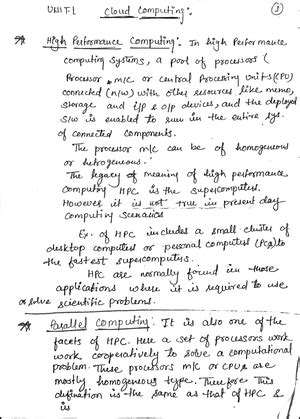 UNIT:1 Cloud Computing:- 1
* High Performance Computing:- In high Performance
computing systems, a pool of processors (
Processor m/c or Central Processing units (CPU)
connected (n/w) with other resources like memo,
storage and i/p & o/p devices, and the deployed
s/w is enabled to run in the entire sys.
of connected components.
The processor m/c can be of homogenous
or hetrogenous.
The legacy meaning of high performance
computing HPC is the supercomputers.
However it is not true in present day
computing scenarios
Ex. of HPC includes a small cluster of
desktop computers or personal computers (PCs) to
the fastest supercomputers.
HPC are normally found in those
applications where it is required to use
or solve scientific problems.
* Parallel Computing:- It is also one of the
facets of HPC. Here a set of processors work
work cooperatively to solve a computational
problem. These processors m/c or CPUs are
mostly homogenous type. Therefore This
defination is the same as that of HPC &
is